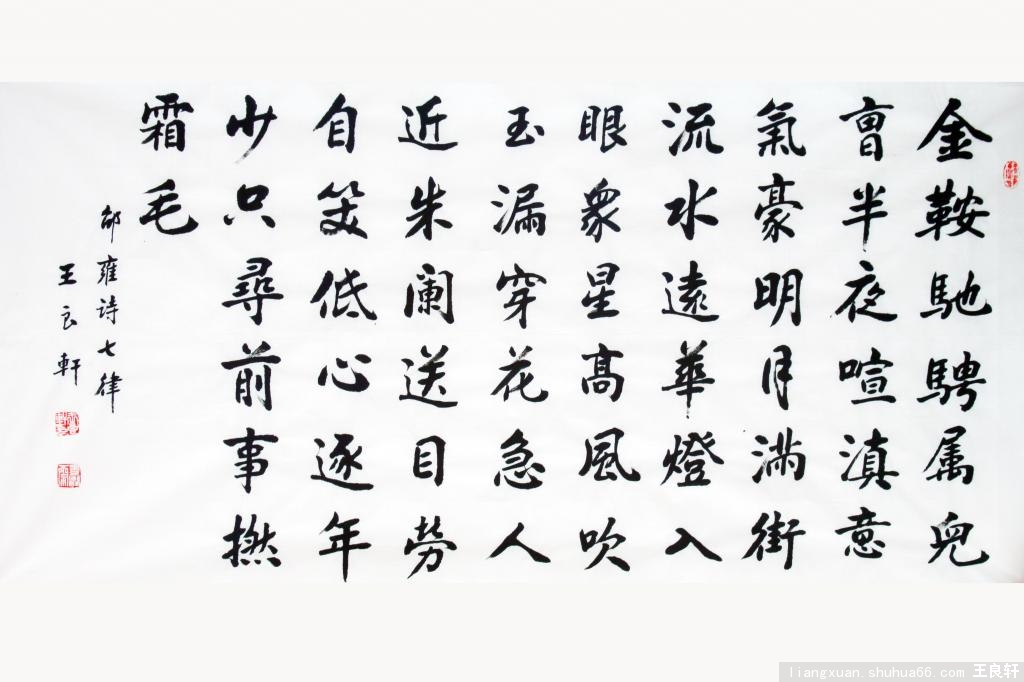 金鞍馳騁属兒
曺半夜喧滇意
氣豪明月満街
流水遠華燈入
眼衆星高風吹
玉漏穿花急人
近朱阑送目勞
自笑低心逐年
少只尋前事撚
霜毛
邵雍诗七律
王良軒
liangxuan.shuhua66.com 王良轩